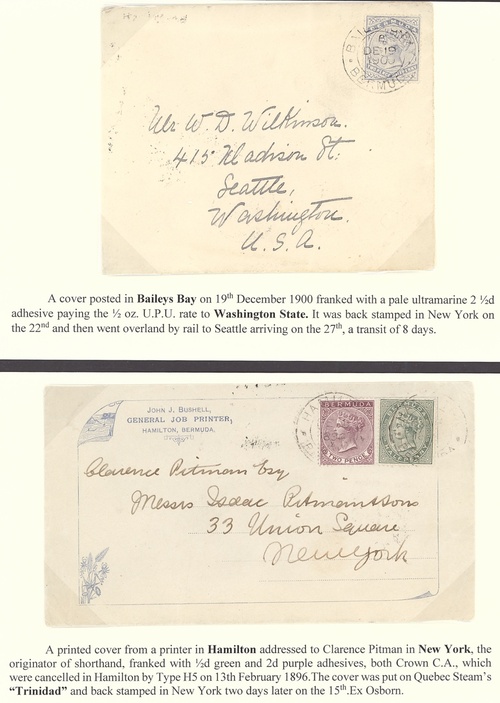 BAILEYS BAY
DE 19
00
BERMUDA
Mr W. D. Wilkinson.
415 Madison St.
Seattle,
Washington.
U. S. A.
A cover posted in Baileys Bay on 19th December 1900 franked with a pale ultramarine 2 ½d
adhesive paying the ½ oz. U.P.U. rate to Washington State. It was back stamped in New York on
the 22nd and then went overland by rail to Seattle arriving on the 27th, a transit of 8 days.
JOHN J. BUSHELL,
GENERAL JOB PRINTER,
HAMILTON, BERMUDA.
BERMUDA
TWO PENCE
Clarence Pitman Esq
Messrs Isaac Pitman & Sons
33 Union Square
New York
A printed cover from a printer in Hamilton addressed to Clarence Pitman in New York, the
originator of shorthand, franked with ½d green and 2d purple adhesives, both Crown C.A., which
were cancelled in Hamilton by Type H5 on 13th February 1896.The cover was put on Quebec Steam's
"Trinidad" and back stamped in New York two days later on the 15th.Ex Osborn.